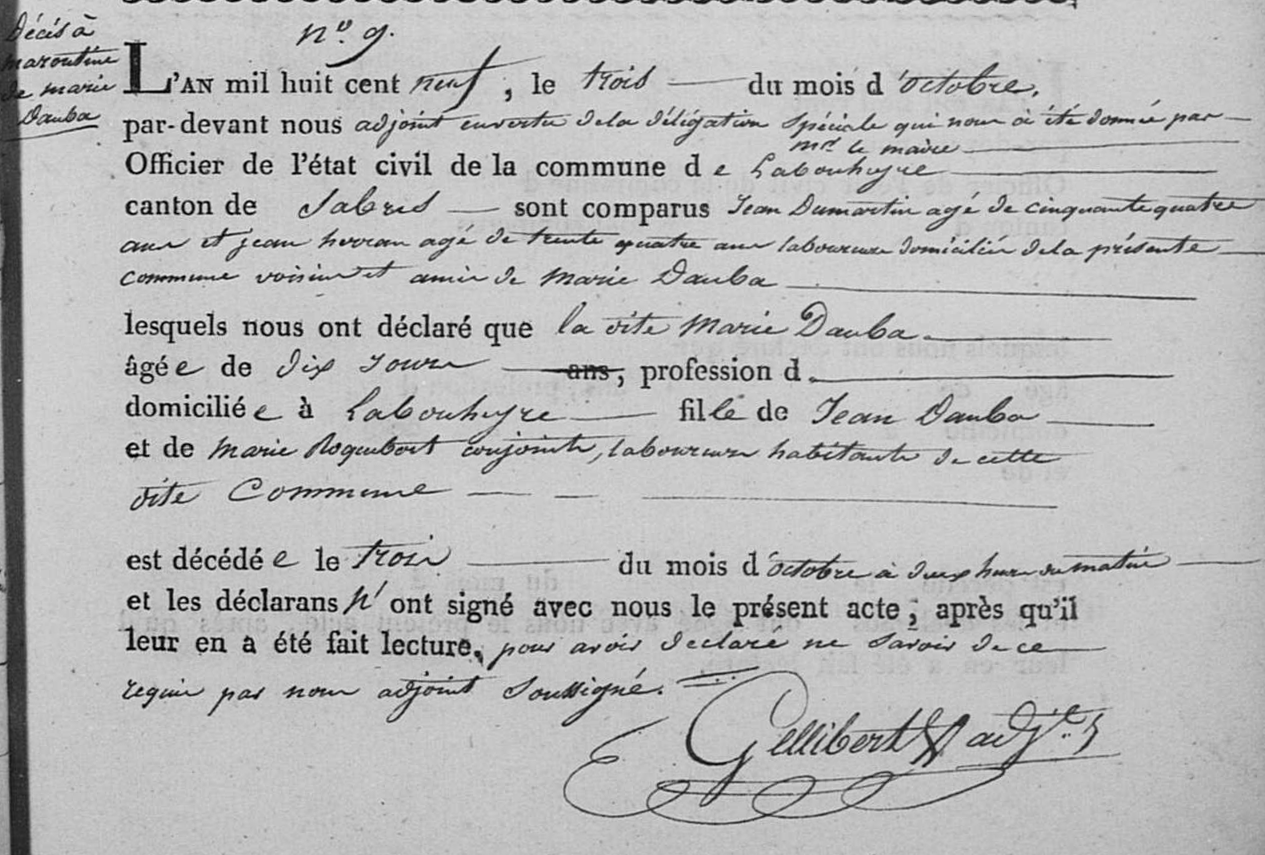 Décès à
maroutine
de marie
Dauba
n.o 9.
L'AN mil huit cent neuf, le trois du mois d'octobre,
par-devant nous adjoint en vertu de la délégation spéciale qui nous a été donnée par
mr. le maire
Officier de l'état civil de la commune de Labouheyre
canton de Sabres sont comparus Jean Dumartin agé de cinquante quatre
ans et jean herran agé de trente quatre ans laboureurs domiciliés de la présente
commune voisins et amis de Marie Dauba
lesquels nous ont déclaré que la dite Marie Dauba
âgée de dix Jours ans, profession d
domiciliée à Labouheyre fille de Jean Dauba
et de marie Roquebort conjoints, laboureurs habitants de cette
dite Commune
est décédée le trois du mois d'octobre à deux heures du matin
et les déclarans n'ont signé avec nous le présent acte; après qu'il
leur en a été fait lecture, pour avoir declaré ne savoir de ce
requis par nous adjoint soussigné.
Gellibert adj.t